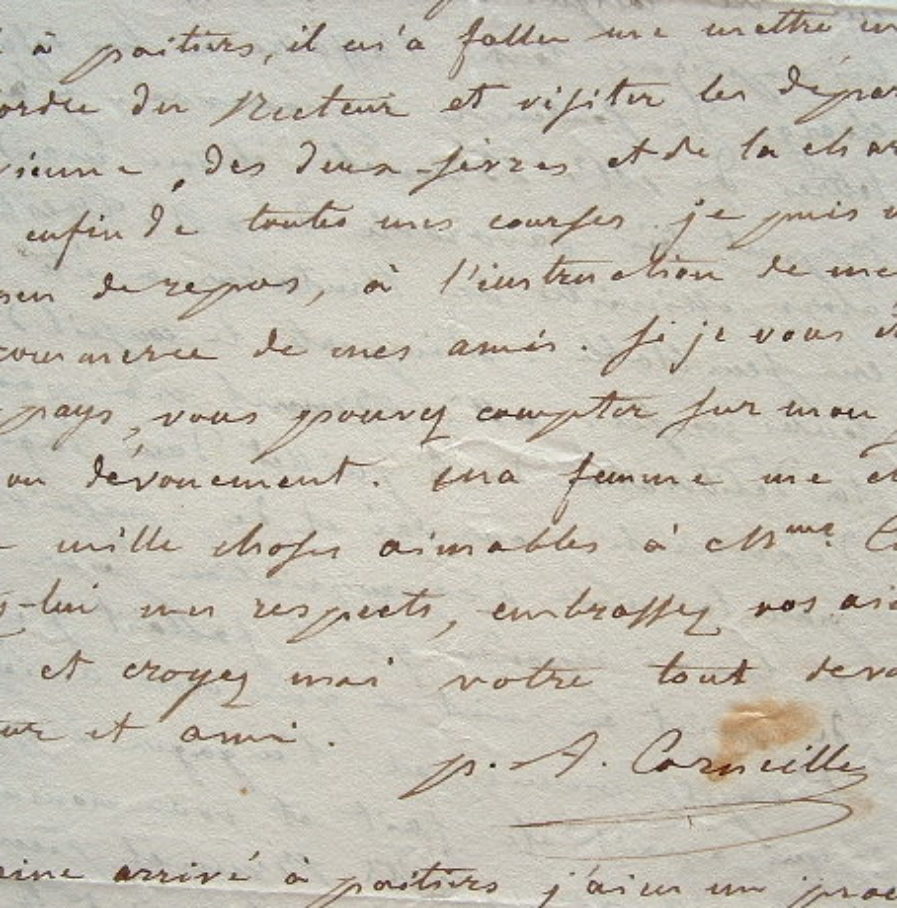 à poitiers, il m'a fallu me mettre
ordre du Recteur et visiter les dépar
vienne, des deux-sèvres et de la char
enfin de toutes mes courses je puis
peu de repos, à l'instruction de me
commerce de mes amis. Si je vous
pays, vous pouvez compter sur mon
on dévouement. ma femme me ch
mille choses aimables à Mme. C
z-lui mes respects, embrassez vos
et croyez moi votre tout devo
eur et ami.
p. A. Corneille
eine arrivé à poitiers j'ai eu un